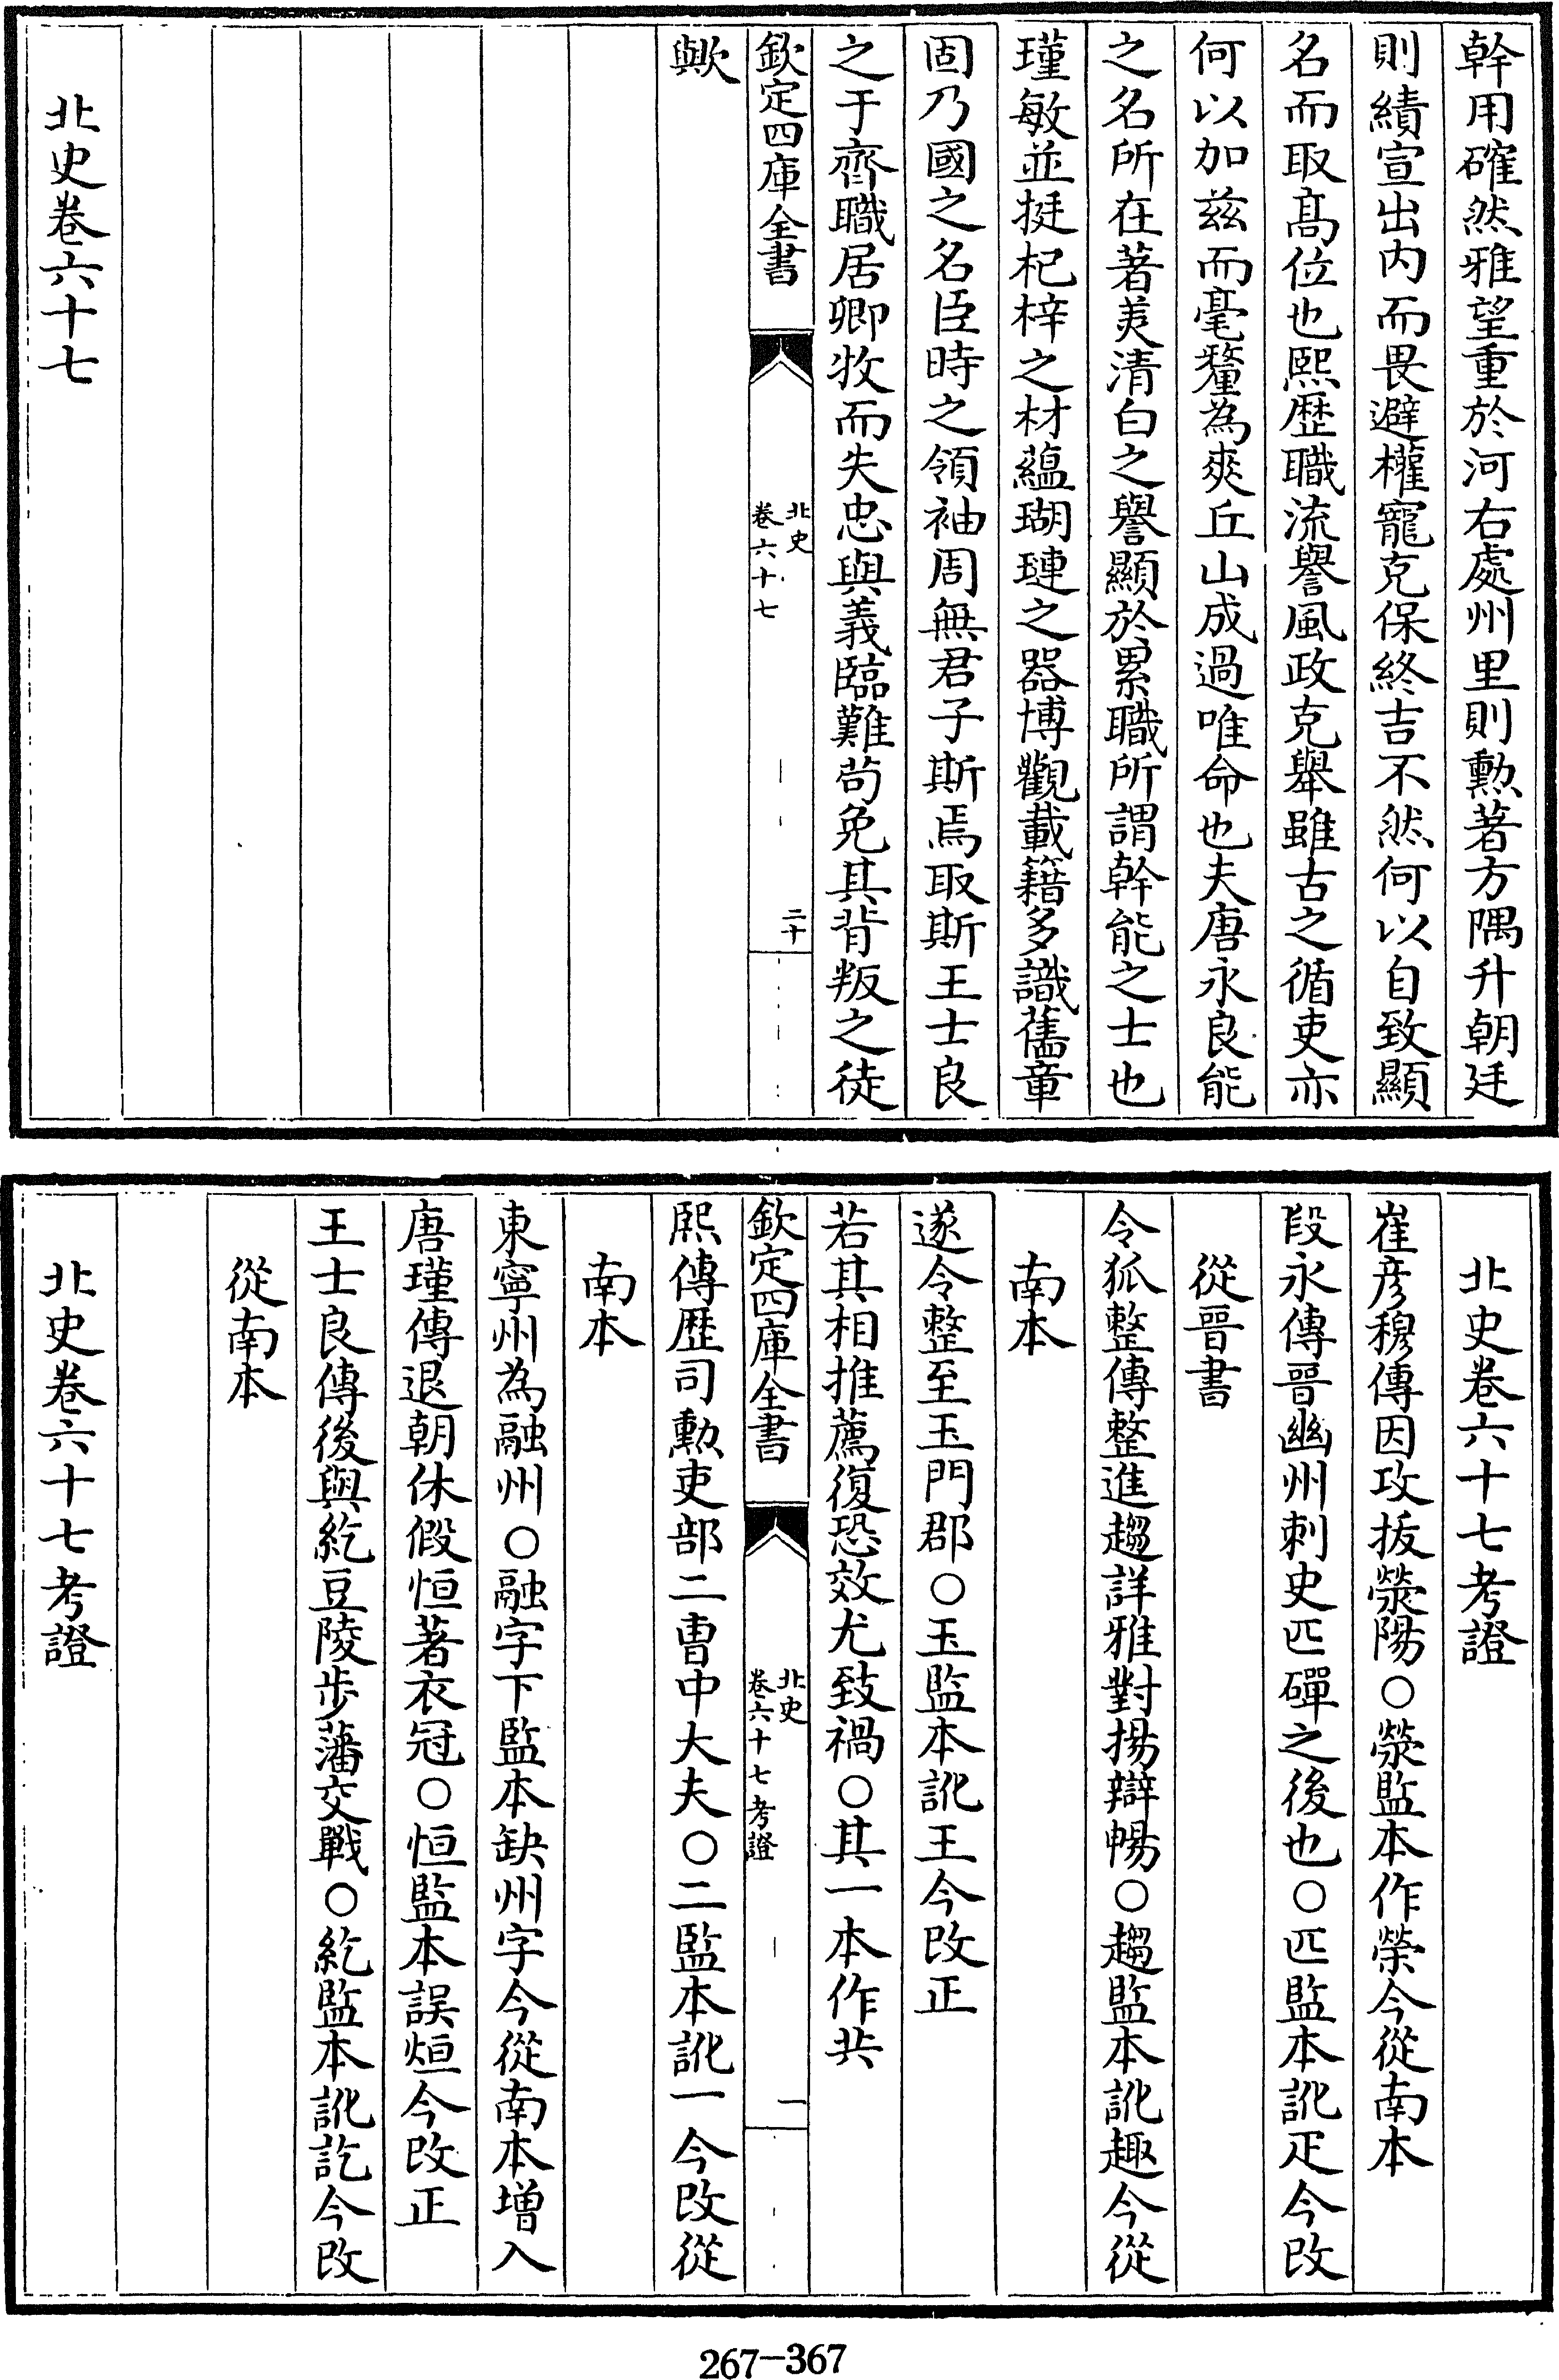 幹用確然雅望重於河右處州里則勲著方隅升朝廷
則績宣出内而畏避權寵克保終吉不然何以自致顯
名而取髙位也熙歴職流譽風政克舉雖古之循吏亦
何以加兹而毫釐為爽丘山成過唯命也夫唐永良能
之名所在著美清白之譽顯於累職所謂幹能之士也
瑾敏並挺杞梓之材蘊瑚璉之器博觀載籍多識舊章
固乃國之名臣時之領袖周無君子斯焉取斯王士良
之于齊職居卿牧而失忠與義臨難茍免其背叛之徒
欽定四庫全書
北史
卷六十七
二十
歟
北史卷六十七
北史卷六十七考證
崔彦穆傳因攻拔滎陽○滎監本作榮今從南本
段永傳晉幽州刺史匹磾之後也○匹監本訛疋今改
從晉書
令狐整傳整進趨詳雅對揚辯暢○趨監本訛趣今從
南本
遂令整至玉門郡○玉監本訛王今改正
若其相推薦復恐效尤致禍○其一本作共
欽定四庫全書
北史
卷六十七考證
一
熙傳歴司勲吏部二曹中大夫○二監本訛一今改從
南本
東寧州為融州○融字下監本缺州字今從南本增入
唐瑾傳退朝休假恒著衣冠○恒監本誤烜今改正
王士良傳後與紇豆陵步藩交戰○紇監本訛訖今改
從南本
北史卷六十七考證
267-367